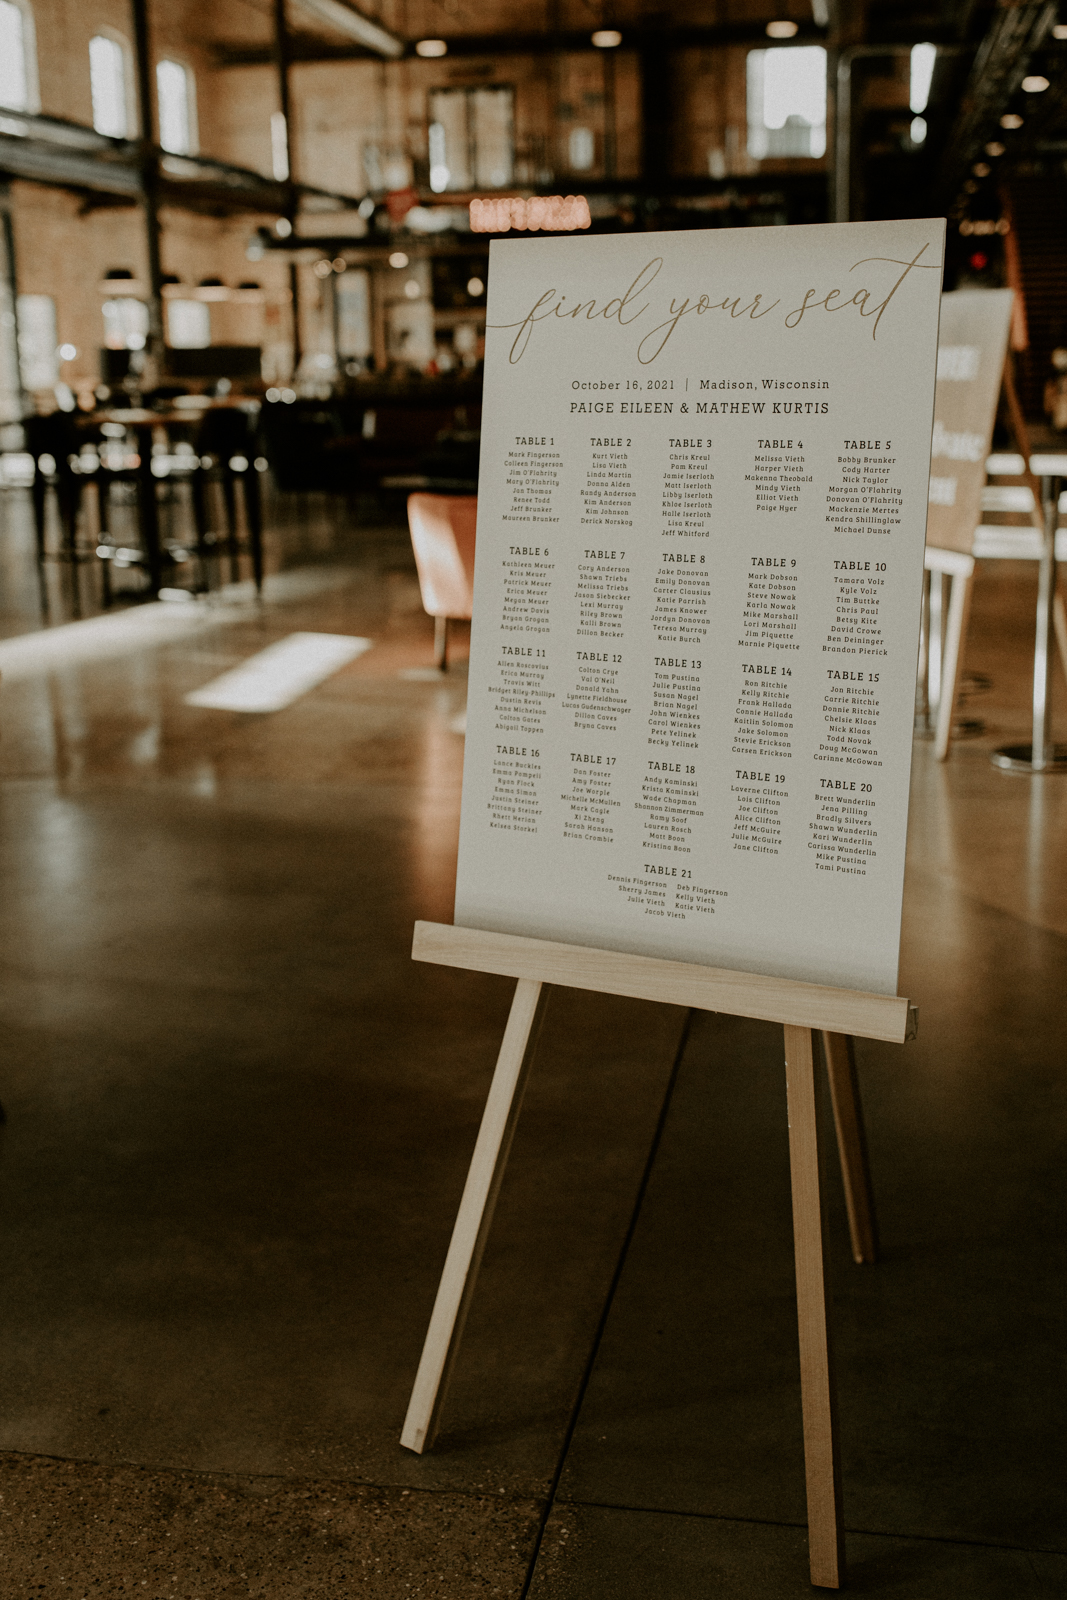 find your seat
October 16, 2021 | Madison, Wisconsin
PAIGE EILEEN & MATHEW KURTIS
TABLE 1
Mark Fingerson
Colleen Fingerson
Jim O'Flahrity
Mary O'Flahrity
Jon Thomas
Renee Todd
Jeff Brunker
Maureen Brunker
TABLE 2
Kurt Vieth
Lisa Vieth
Linda Martin
Donna Alden
Randy Anderson
Kim Anderson
Kim Johnson
Derick Norskog
TABLE 3
Chris Kreul
Pam Kreul
Jamie Iserloth
Matt Iserloth
Libby Iserloth
Khloe Iserloth
Halle Iserloth
Lisa Kreul
Jeff Whitford
TABLE 4
Melissa Vieth
Harper Vieth
Makenna Theobald
Mindy Vieth
Elliot Vieth
Paige Hyer
TABLE 5
Bobby Brunker
Cody Harter
Nick Taylor
Morgan O'Flahrity
Donovan O'Flahrity
Mackenzie Mertes
Kendra Shillinglaw
Michael Dunse
TABLE 6
Kathleen Meuer
Kris Meuer
Patrick Meuer
Erica Meuer
Megan Meuer
Andrew Davis
Bryan Grogan
Angela Grogan
TABLE 7
Cory Anderson
Shawn Triebs
Melissa Triebs
Jason Siebecker
Lexi Murray
Riley Brown
Kalli Brown
Dillon Becker
TABLE 8
Jake Donovan
Emily Donovan
Carter Clausius
Katie Parrish
James Knower
Jordyn Donovan
Teresa Murray
Katie Burch
TABLE 9
Mark Dobson
Kate Dobson
Steve Nowak
Karla Nowak
Mike Marshall
Lori Marshall
Jim Piquette
Marnie Piquette
TABLE 10
Tamara Volz
Kyle Volz
Tim Buttke
Chris Paul
Betsy Kite
David Crowe
Ben Deininger
Brandon Pierick
TABLE 11
Allen Roscovius
Erica Murray
Travis Witt
Bridget Riley-Phillips
Dustin Bevis
Anna Michelson
Colton Gates
Abigail Toppen
TABLE 12
Colton Crye
Val O'Neil
Donald Yahn
Lynette Fieldhouse
Lucas Gudenschwager
Dillon Caves
Bryna Caves
TABLE 13
Tom Pustina
Julie Pustina
Susan Nagel
Brian Nagel
John Wienkes
Carol Wienkes
Pete Yelinek
Becky Yelinek
TABLE 14
Ron Ritchie
Kelly Ritchie
Frank Hallada
Connie Hallada
Kaitlin Solomon
Jake Solomon
Stevie Erickson
Carsen Erickson
TABLE 15
Jon Ritchie
Carrie Ritchie
Donnie Ritchie
Chelsie Klaas
Nick Klaas
Todd Novak
Doug McGowan
Carinne McGowan
TABLE 16
Lance Buckles
Emma Pampeli
Ryan Flock
Emma Simon
Justin Steiner
Brittany Steiner
Rhett Herian
Kelsea Storkel
TABLE 17
Dan Foster
Amy Foster
Joe Worple
Michelle McMullen
Mark Cagle
Xi Zheng
Sarah Hanson
Brian Crombie
TABLE 18
Andy Kaminski
Krista Kaminski
Wade Chapman
Shannon Zimmerman
Ramy Soof
Lauren Rosch
Matt Boon
Kristina Boon
TABLE 19
Laverne Clifton
Lois Clifton
Joe Clifton
Alice Clifton
Jeff McGuire
Julie McGuire
Jane Clifton
TABLE 20
Brett Wunderlin
Jena Pilling
Bradly Silvers
Shawn Wunderlin
Kari Wunderlin
Carissa Wunderlin
Mike Pustina
Tami Pustina
TABLE 21
Dennis Fingerson Deb Fingerson
Sherry James Kelly Vieth
Julie Vieth Katie Vieth
Jacob Vieth